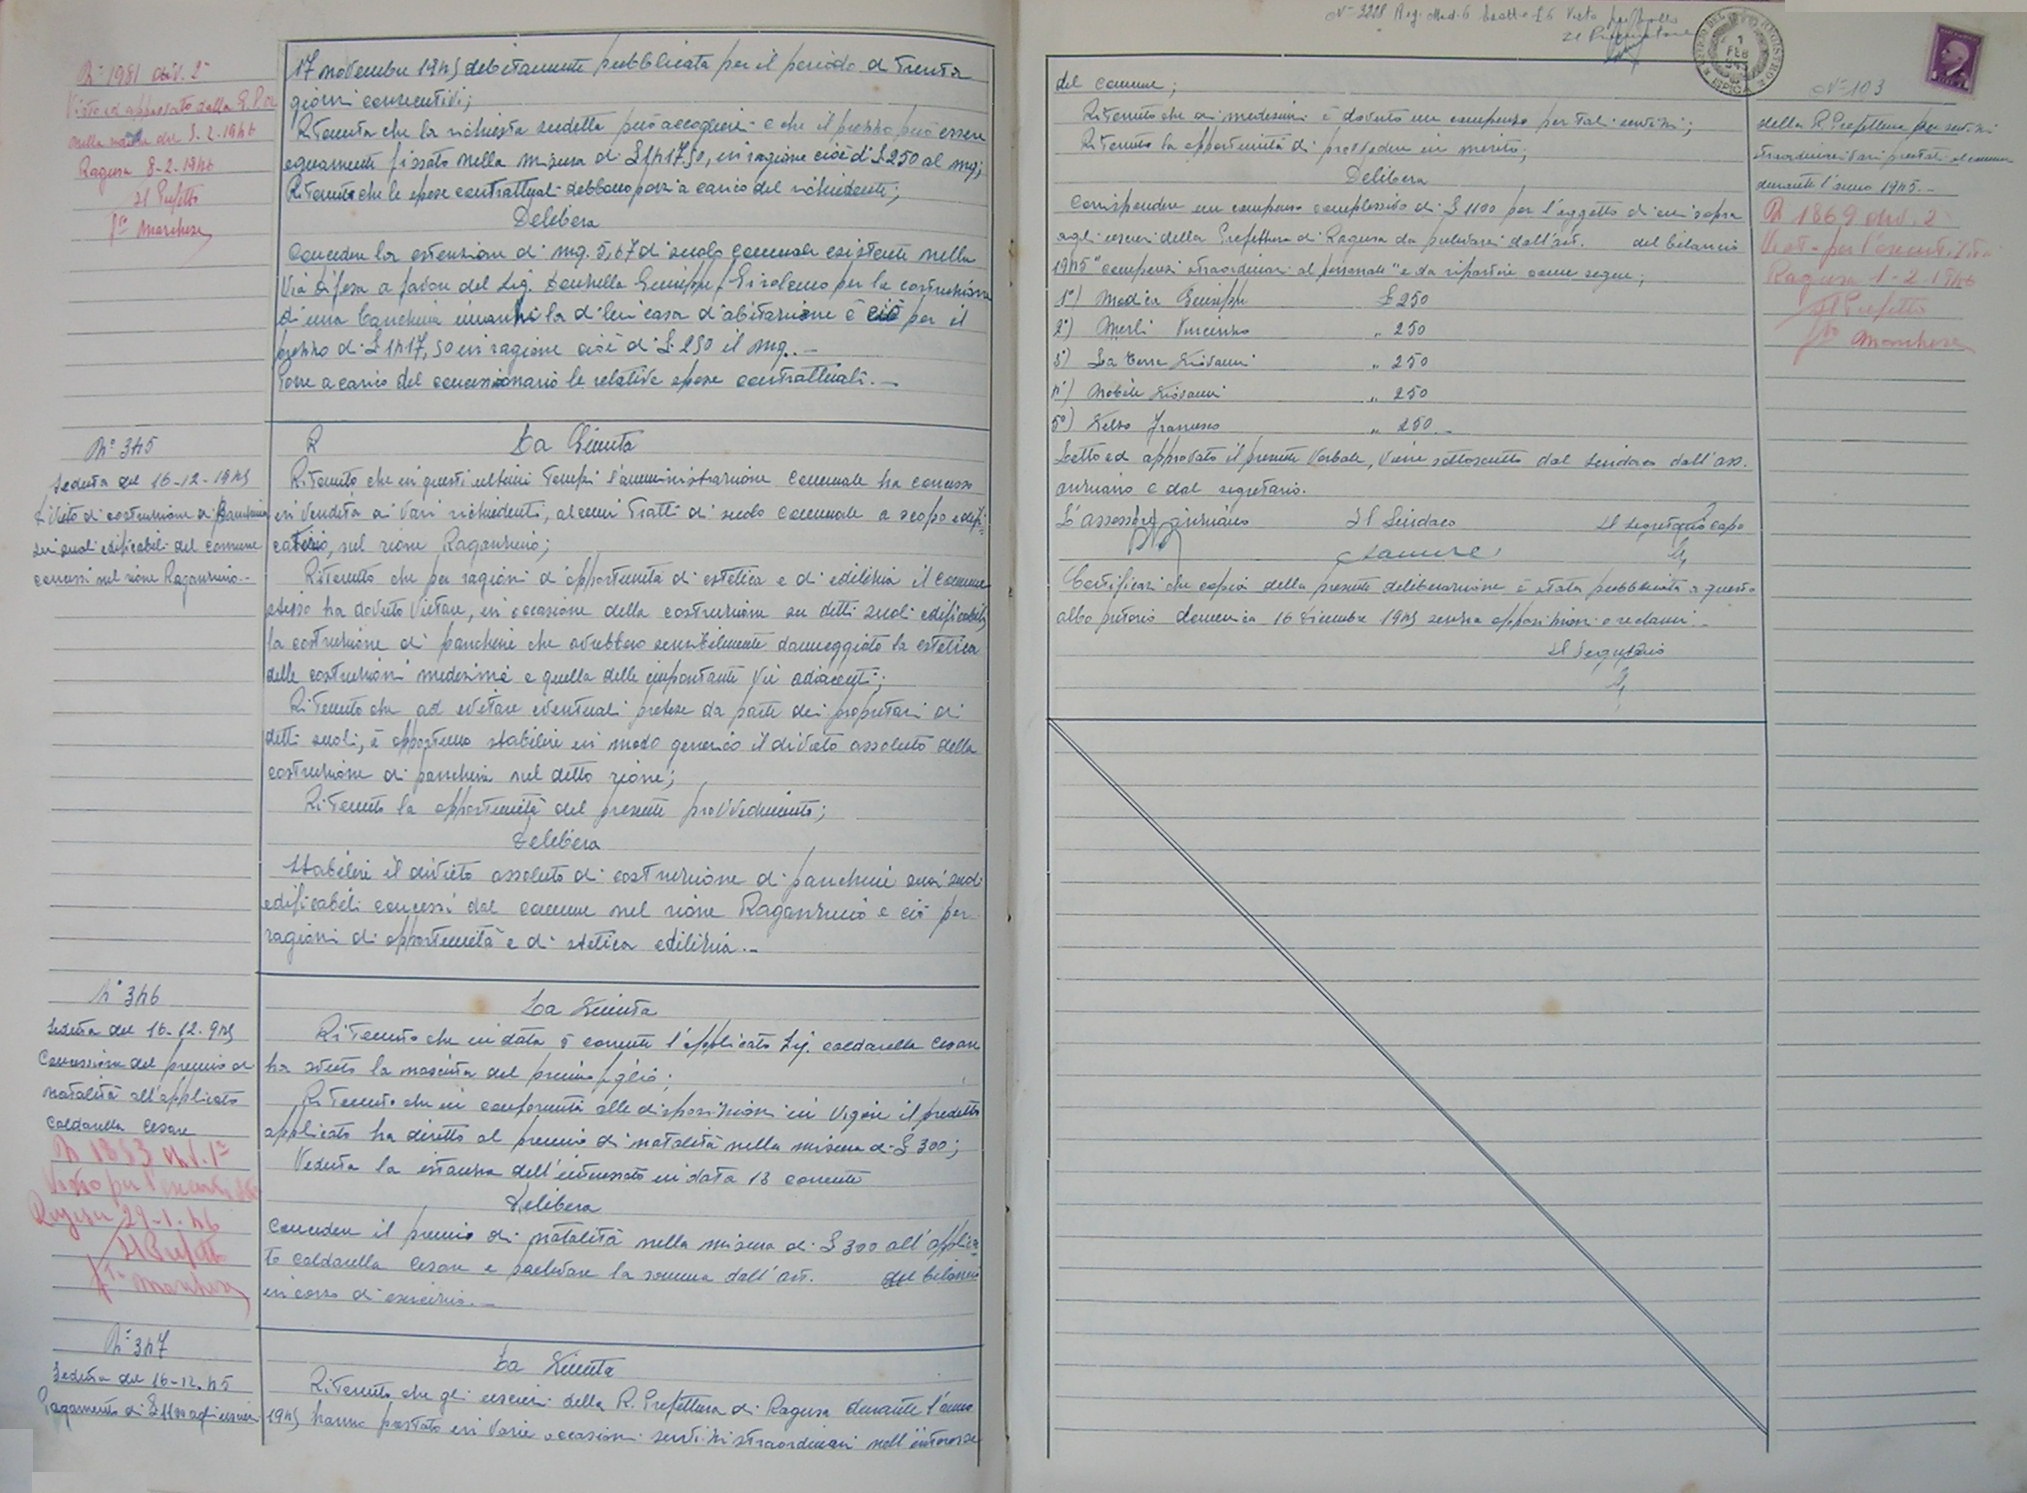 N° 1981 div. 2ª
Visto ed approvato dalla G.P.A.
nella seduta del 5-2-1946
Ragusa 8-2-1946
Il Prefetto
Fto Marchese
17 novembre 1945 debitamente pubblicata per il periodo di trenta
giorni consecutivi;
Ritenuta che la richiesta suddetta può accogliersi e che il prezzo può essere
equamente fissato nella misura di £ 1417,50, in ragione cioè di £ 250 al mq;
Ritenuto che le spese contrattuali debbono porsi a carico del richiedente;
Delibera
Concedere la estensione di mq. 5,67 di suolo comunale esistente nella
Via Difesa a favore del Sig. Giuseppe fu Girolamo per la costruzione
di una banchina innanzi la di lui casa d'abitazione e ciò per il
prezzo di £ 1417,50 in ragione cioè di £ 250 il mq. -
Porre a carico del concessionario le relative spese contrattuali. -
N° 345
Seduta del 16-12-1945
Divieto di costruzione di panchine
sui suoli edificabili del comune
concessi nel rione Raganzino. -
R La Giunta
Ritenuto che in questi ultimi tempi l'amministrazione comunale ha concesso
in vendita ai vari richiedenti, alcuni tratti di suolo comunale a scopo edifi-
catorio, nel rione Raganzino;
Ritenuto che per ragioni d'opportunità di estetica e di edilizia il comune
stesso ha dovuto vietare, in occasione della costruzione su detti suoli edificabili,
la costruzione di panchine che avrebbero sensibilmente danneggiato la estetica
delle costruzioni medesime e quella delle importanti vie adiacenti;
Ritenuto che ad evitare eventuali pretese da parte dei proprietari di
detti suoli, è opportuno stabilire in modo generico il divieto assoluto della
costruzione di panchine nel detto rione;
Ritenuto la opportunità del presente provvedimento;
Delibera
Stabilire il divieto assoluto di costruzione di panchine sui suoli
edificabili concessi dal comune nel rione Raganzino e ciò per
ragioni di opportunità e di stetica edilizia. -
N° 346
Seduta del 16-12-945
Concessione del premio di
natalità all'applicato
Caldarella Cesare
N 1883 div. 1ª
Visto per l'esecutività
Ragusa 29-1-46
Il Prefetto
Fto Marchese
La Giunta
Ritenuto che in data 8 corrente l'applicato Sig. Caldarella Cesare
ha avuto la nascita del primo figlio;
Ritenuto che in conformità alle disposizioni in vigore il predetto
applicato ha diretto al premio di natalità nella misura di £ 300;
Veduta la istanza dell'interessato in data 13 corrente
Delibera
Concedere il premio di natalità nella misura di £ 300 all'applica-
to Caldarella Cesare e prelevare la somma dall'art. del bilancio
in corso di esercizio. -
N° 347
Seduta del 16-12-45
Pagamento di £ 1100 agli uscieri
La Giunta
Ritenuto che gli uscieri della R. Prefettura di Ragusa durante l'anno
1945 hanno prestato in varie occasioni servizi straordinari nell'interesse
N° 3228 Reg. Mod. 6 Esatte £ 6 Visto per bollo
Il Procuratore
UFFICIO DEL REGISTRO
1 FEB
del comune;
Ritenuto che ai medesimi è dovuto un compenso per tali servizi;
Ritenuto la opportunità di provvedere in merito;
Delibera
Corrispondere un compenso complessivo di £ 1100 per l'oggetto di cui sopra
agli uscieri della Prefettura di Ragusa da prelevarsi dall'art. del bilancio
1945 "compensi straordinari al personale" e da ripartirsi come segue;
1°) Modica Giuseppe £ 250
2°) Merli Vincenzo " 250
3°) La Terra Giovanni " 250
4°) Nobile Giovanni " 250
5°) Francesco " 250 -
Letto ed approvato il presente verbale, viene sottoscritto dal Sindaco dall'ass.
anziano e dal segretario.
L'assessore anziano Il Sindaco Il segretario capo
Certificasi che copia della presente deliberazione è stata pubblicata a questo
albo pretorio domenica 16 dicembre 1945 senza opposizioni o reclami. -
Il Segretario
N° 103
della R. Prefettura per servizi
straordinari vari prestati al comune
durante l'anno 1945. -
N 1869 div. 2
Visto per l'esecutività
Ragusa 1-2-1946
Il Prefetto
Fto Marchese